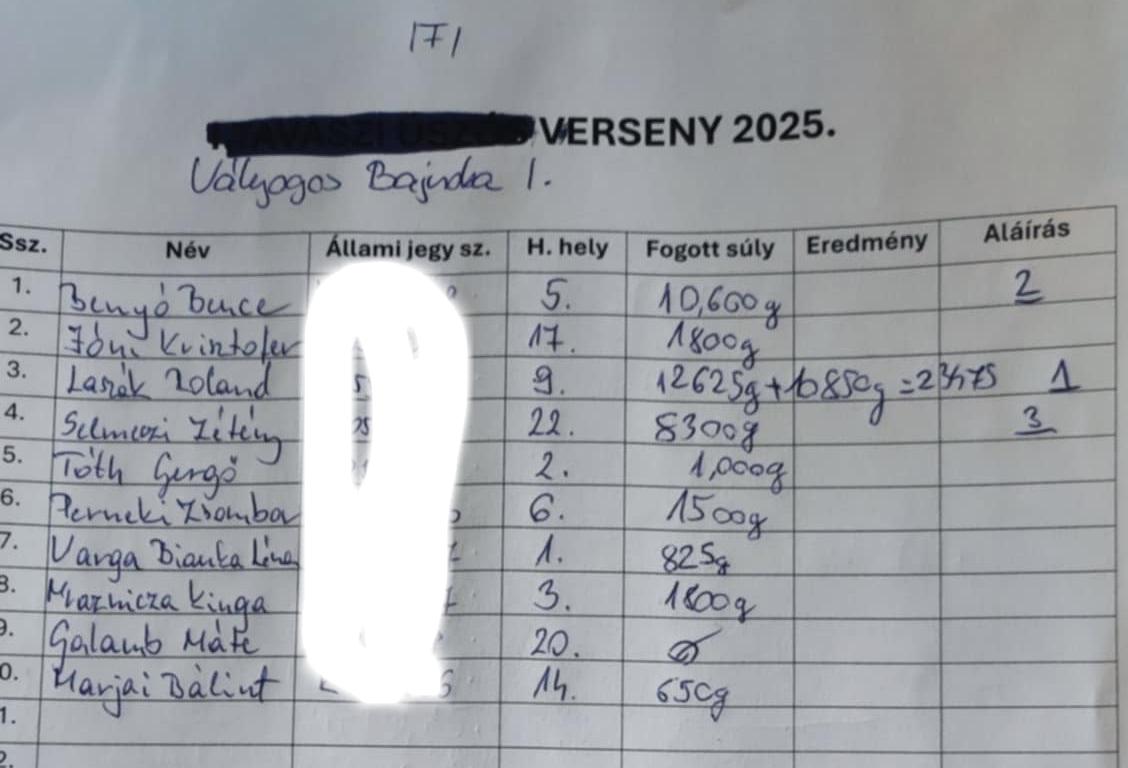 IFI
VERSENY 2025.
Vályogos Bajnoka 1.
Ssz. Név Állami jegy sz. H. hely Fogott súly Eredmény Aláírás
1. Benyó Bence 5. 10,600g 2
2. Jóni Krisztofer 17. 1800g
3. Laszák Roland 9. 12625g+10850g=23475 1
4. Selmeczi Zétény 22. 8300g 3
5. Tóth Gergő 2. 1,000g
6. Perneki Zsombor 6. 1500g
7. Varga Bianka Léna 1. 825g
8. Mraznicza Kinga 3. 1800g
9. Galamb Máté 20. Ø
0. Marjai Bálint 14. 650g
1.
2.